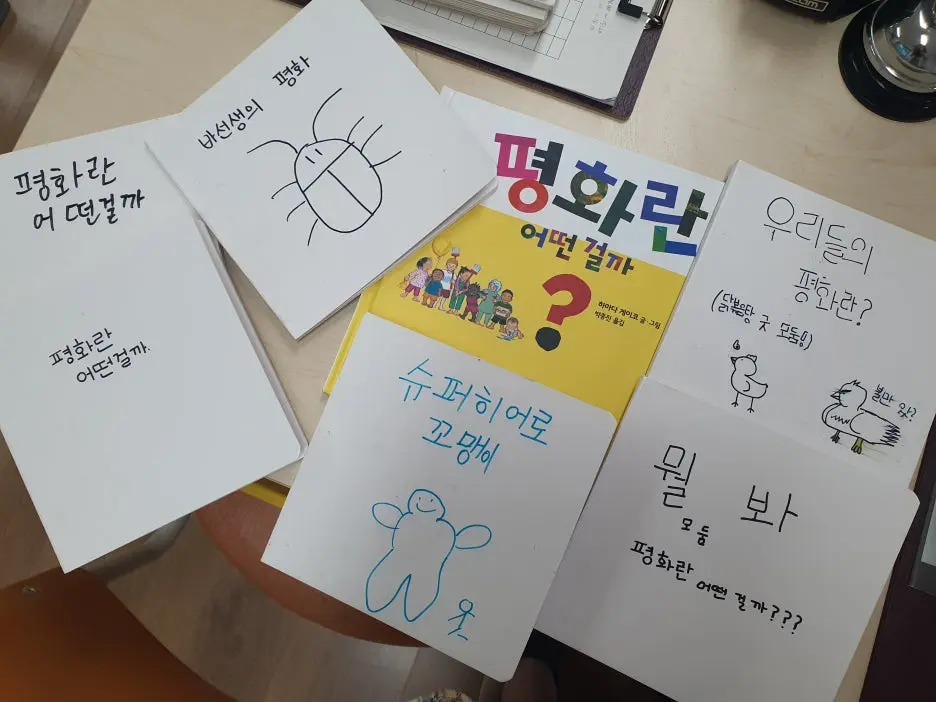 평화란
어떤걸까
평화란
어떤걸까.
바선생의 평화
평화란
어떤 걸까
?
하마다 게이코 글·그림
박종진 옮김
우리들의
평화란?
(닭볶음탕 굿 모둠!!)
불만 있?
슈퍼히어로
꼬맹이
뭘 봐
모둠
평화란 어떤 걸까???